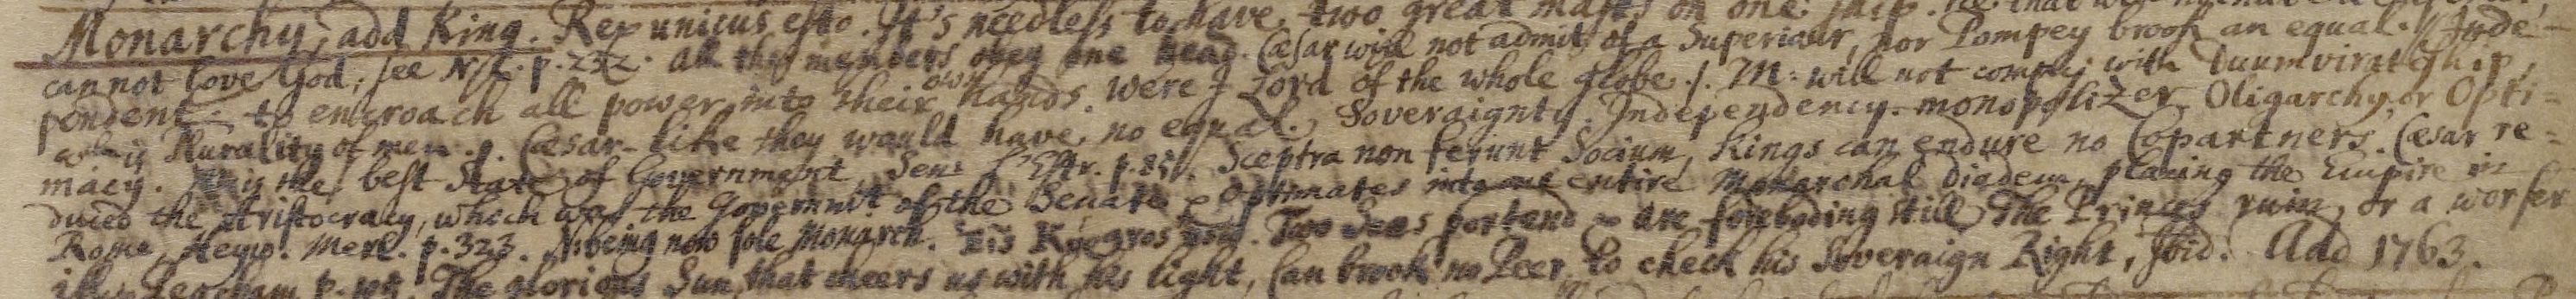 Monarchy, add King. Rex unicus esto. It's needless to have two great masts on one ship.
cannot love God, see N.L. p. 232. all the members obey one head. Cæsar will not admit of a Superiour, nor Pompey brook an equal. Inde-
pendent. to encroach all power into their own hands. Were I Lord of the whole globe. M: will not comply with Duumviratship,
Plurality of men. Cæsar-like they would have no equal. Soveraignty. Independency. monopolizer. Oligarchy, or Opti=
macy. is the best State of Government, Sen: L'Estr. p. 851. Sceptra non ferunt Socium, Kings can endure no Copartners. Cæsar re=
duced the Aristocracy, which was the Governmt. of the Senate & Optimates into entire Monarchal diadem, placing the Empire in
Rome, Heyw. Merl. p. 323. N. being now sole Monarch. Two Suns portend & are foreboding still The Princes ruin, or a worser
ill, p. The glorious Sun, that cheers us with his light, Can brook no Peer, to check his Soveraign Right, Ibid. Add 1763.